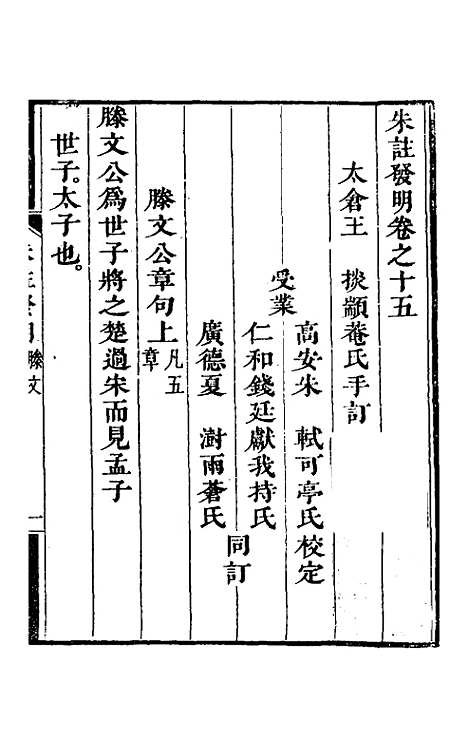 朱註發明卷之十五
太倉王 掞顓菴氏手訂
受業
高安朱 軾可亭氏校定
仁和錢廷獻我持氏
廣德夏 澍雨蒼氏
同訂
滕文公章句上 凡五章
滕文公爲世子將之楚過宋而見孟子
世子。太子也。
滕文
一